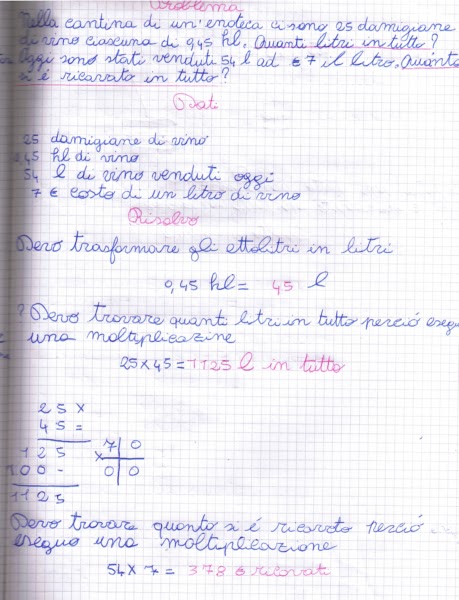 Problema
Nella cantina di un'enoteca ci sono 25 damigiane
di vino ciascuna di 0,45 hl. Quanti litri in tutto?
Oggi sono stati venduti 54 l ad € 7 il litro. Quanto
si è ricavato in tutto?
Dati
25 damigiane di vino
0,45 hl di vino
54 l di vino venduti oggi
7 € costo di un litro di vino
Risolvo
Devo trasformare gli ettolitri in litri
0,45 hl = 45 l
? Devo trovare quanti litri in tutto perció esegu
una moltiplicazine
25 x 45 = 1125 l in tutto
25 x
45 =
125
100-
1125
7 0
x
0 0
Devo trovare quanto si é ricavato perció
eseguo una moltiplicazione
54 x 7 = 378 € ricavati